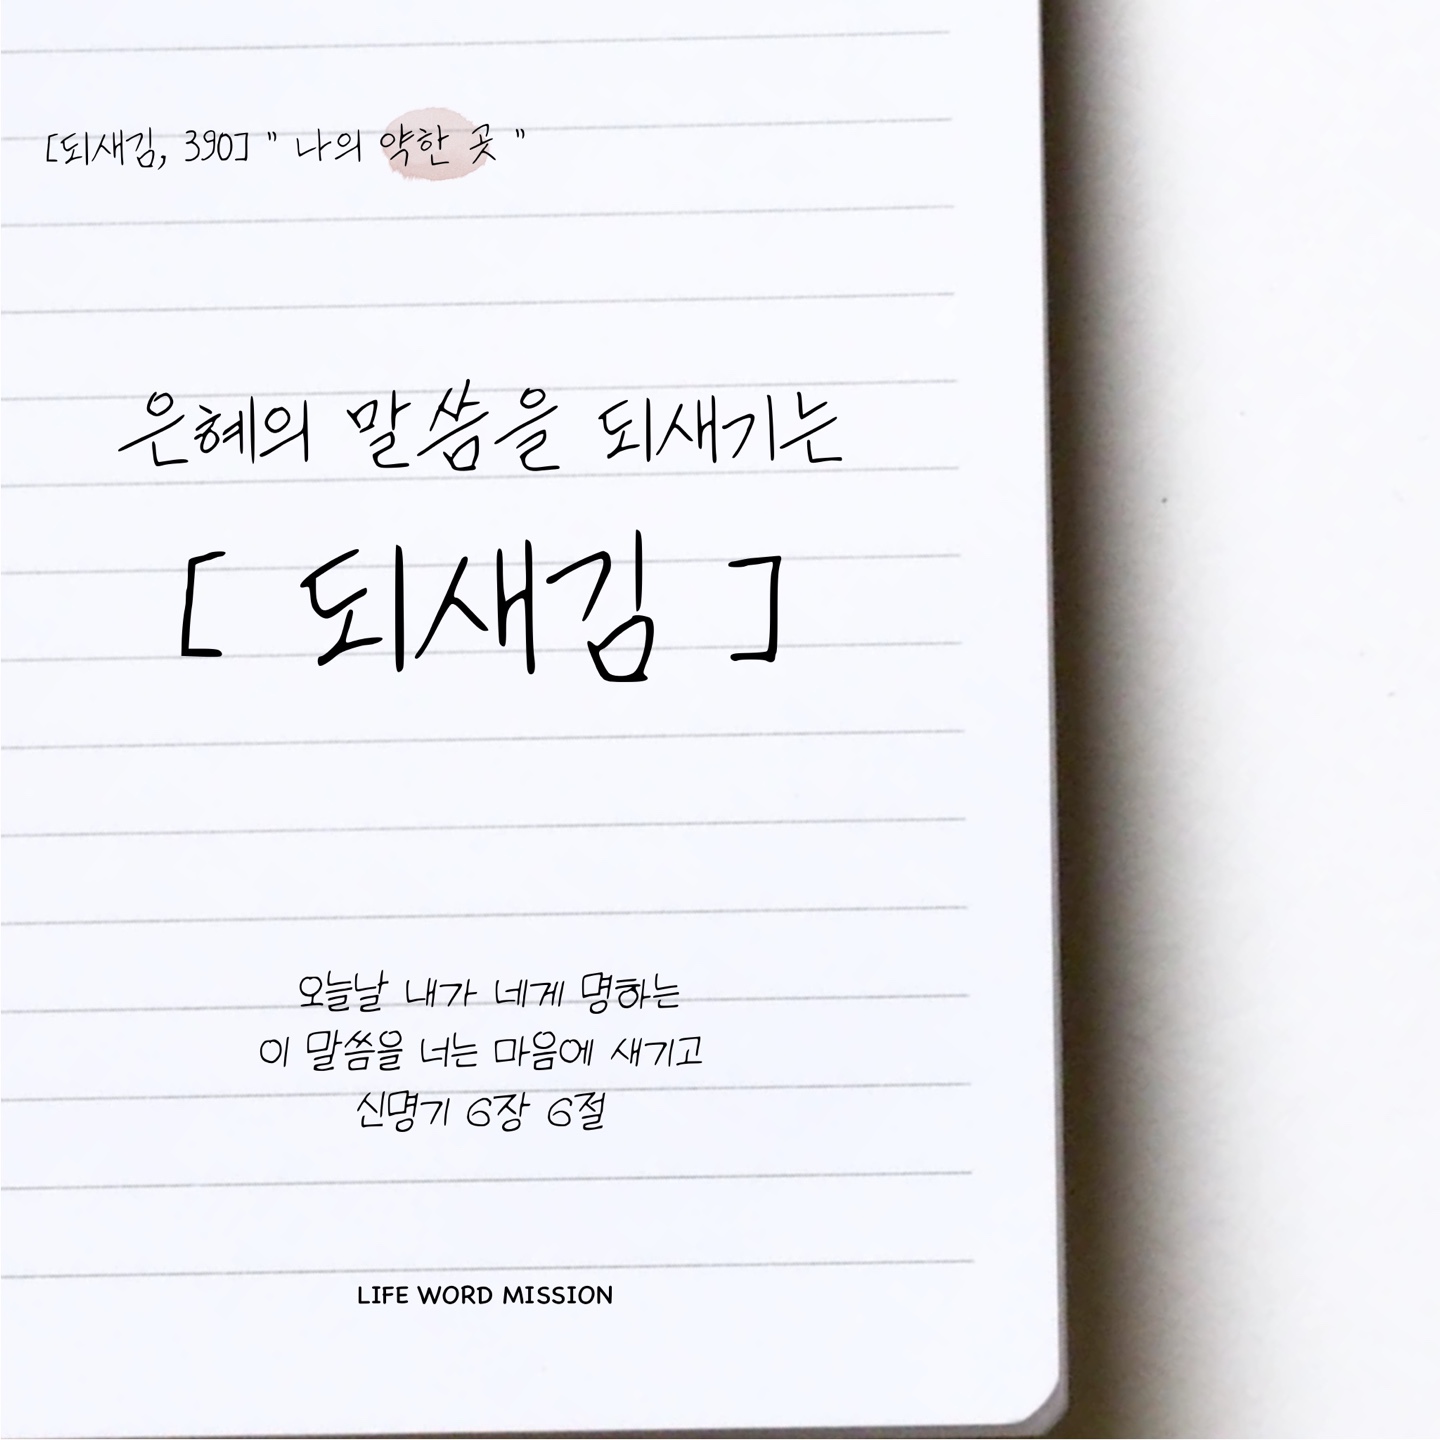 [되새김, 390] " 나의 약한 곳 "
은혜의 말씀을 되새기는
[ 되새김 ]
오늘날 내가 네게 명하는
이 말씀을 너는 마음에 새기고
신명기 6장 6절
LIFE WORD MISSION